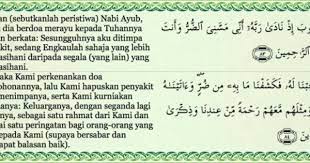 an (sebutkanlah peristiwa) Nabi Ayub,
dia berdoa merayu kepada Tuhannya
n berkata: Sesungguhnya aku ditimpa
kit, sedang Engkaulah sahaja yang lebih
asihani daripada segala (yang lain) yang
وبَ إِذْ نَادَىٰ رَبَّهُۥٓ أَنِّى مَسَّنِىَ ٱلضُّرُّ وَأَنتَ
ٱلرَّٰحِمِينَ ٨٣
aka Kami perkenankan doa
ohonannya, lalu Kami hapuskan penyakit
menimpanya, serta Kami kurniakan
nya: Keluarganya, dengan seganda lagi
inya, sebagai satu rahmat dari Kami dan
ai satu peringatan bagi orang-orang yang
epada Kami (supaya bersabar dan
apat balasan baik).
نَا لَهُۥ فَكَشَفْنَا مَا بِهِۦ مِن ضُرٍّ وَءَاتَيْنَٰهُ
وَمِثْلَهُم مَّعَهُمْ رَحْمَةً مِّنْ عِندِنَا وَذِكْرَىٰ
٨٤